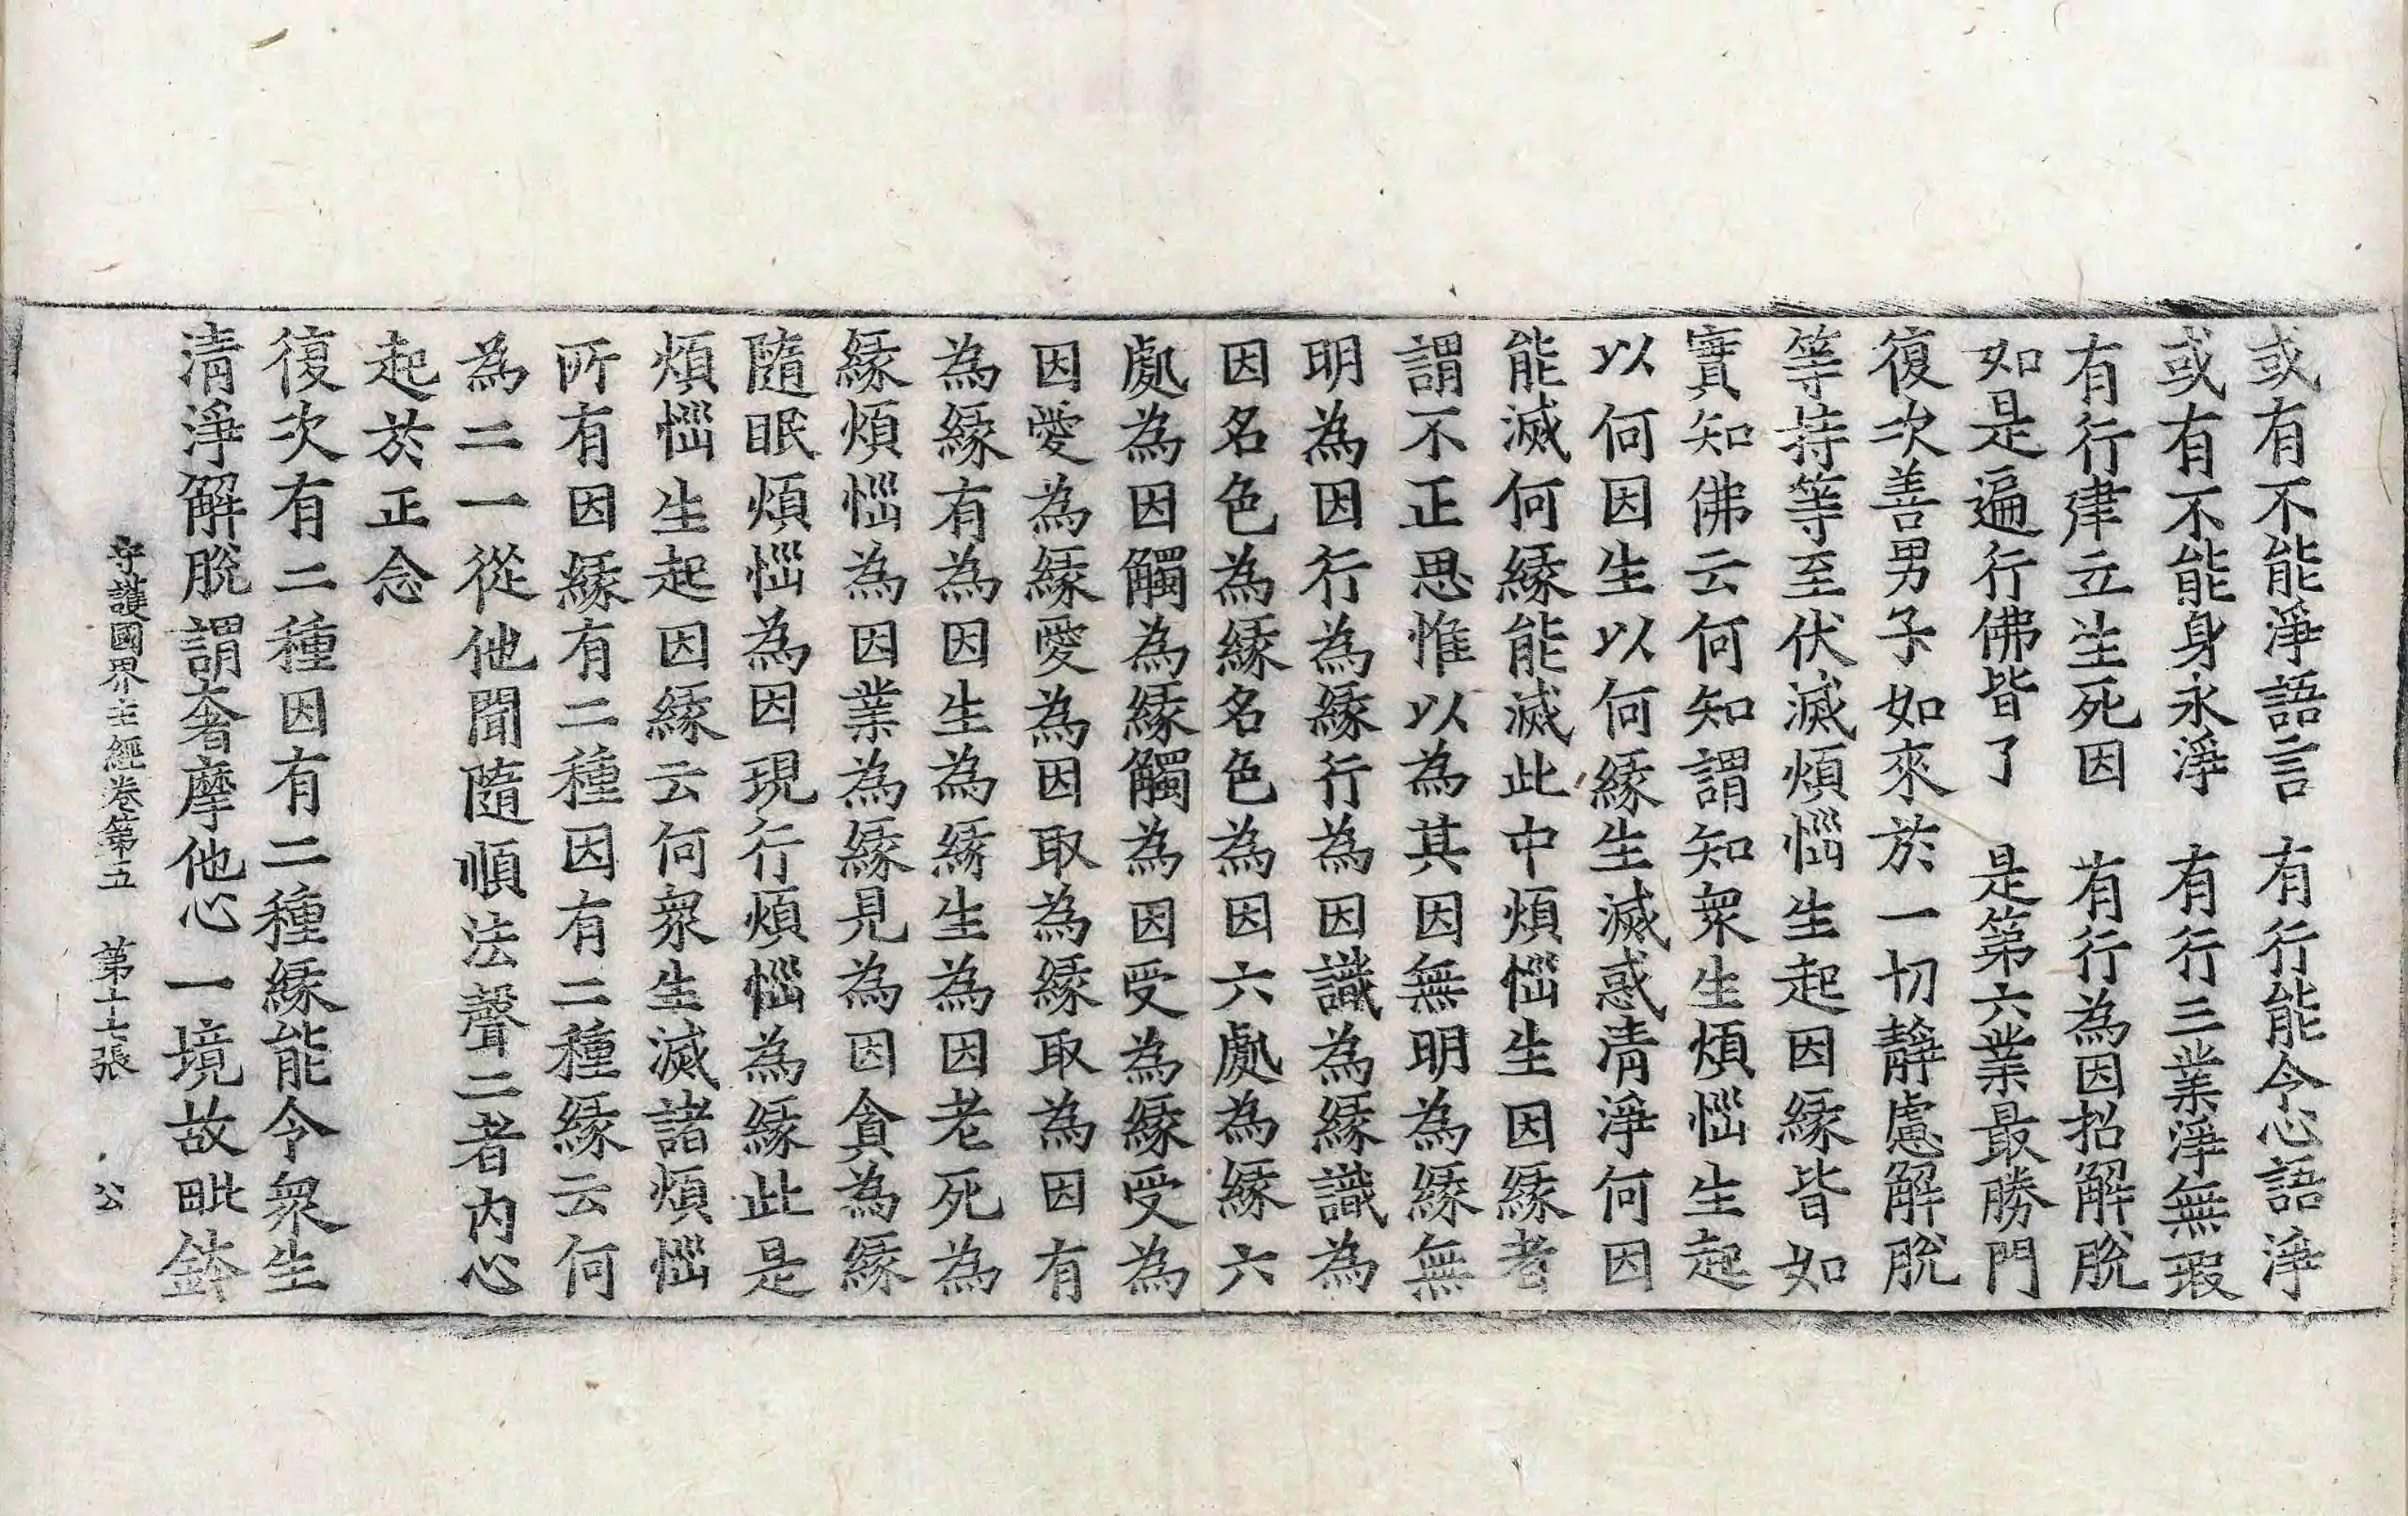 或有不能淨語言　有行能令心語淨
或有不能身永淨　有行三業淨無瑕
有行建立生死因　有行為因招解脫
如是遍行佛皆了　是第六業最勝門
復次善男子如來於一切靜慮解脫
等持等至伏滅煩惱生起因緣皆如
實知佛云何知謂知衆生煩惱生起
以何因生以何緣生滅惑清淨何因
能滅何緣能滅此中煩惱生因緣者
謂不正思惟以為其因無明為緣無
明為因行為緣行為因識為緣識為
因名色為緣名色為因六處為緣六
處為因觸為緣觸為因受為緣受為
因愛為緣愛為因取為緣取為因有
為緣有為因生為緣生為因老死為
緣煩惱為因業為緣見為因貪為緣
隨眠煩惱為因現行煩惱為緣此是
煩惱生起因緣云何衆生滅諸煩惱
所有因緣有二種因有二種緣云何
為二一從他聞隨順法聲二者內心
起於正念
復次有二種因有二種緣能令衆生
清淨解脫謂奢摩他心一境故毗鉢
守護國界主經卷第五　第十七張　公